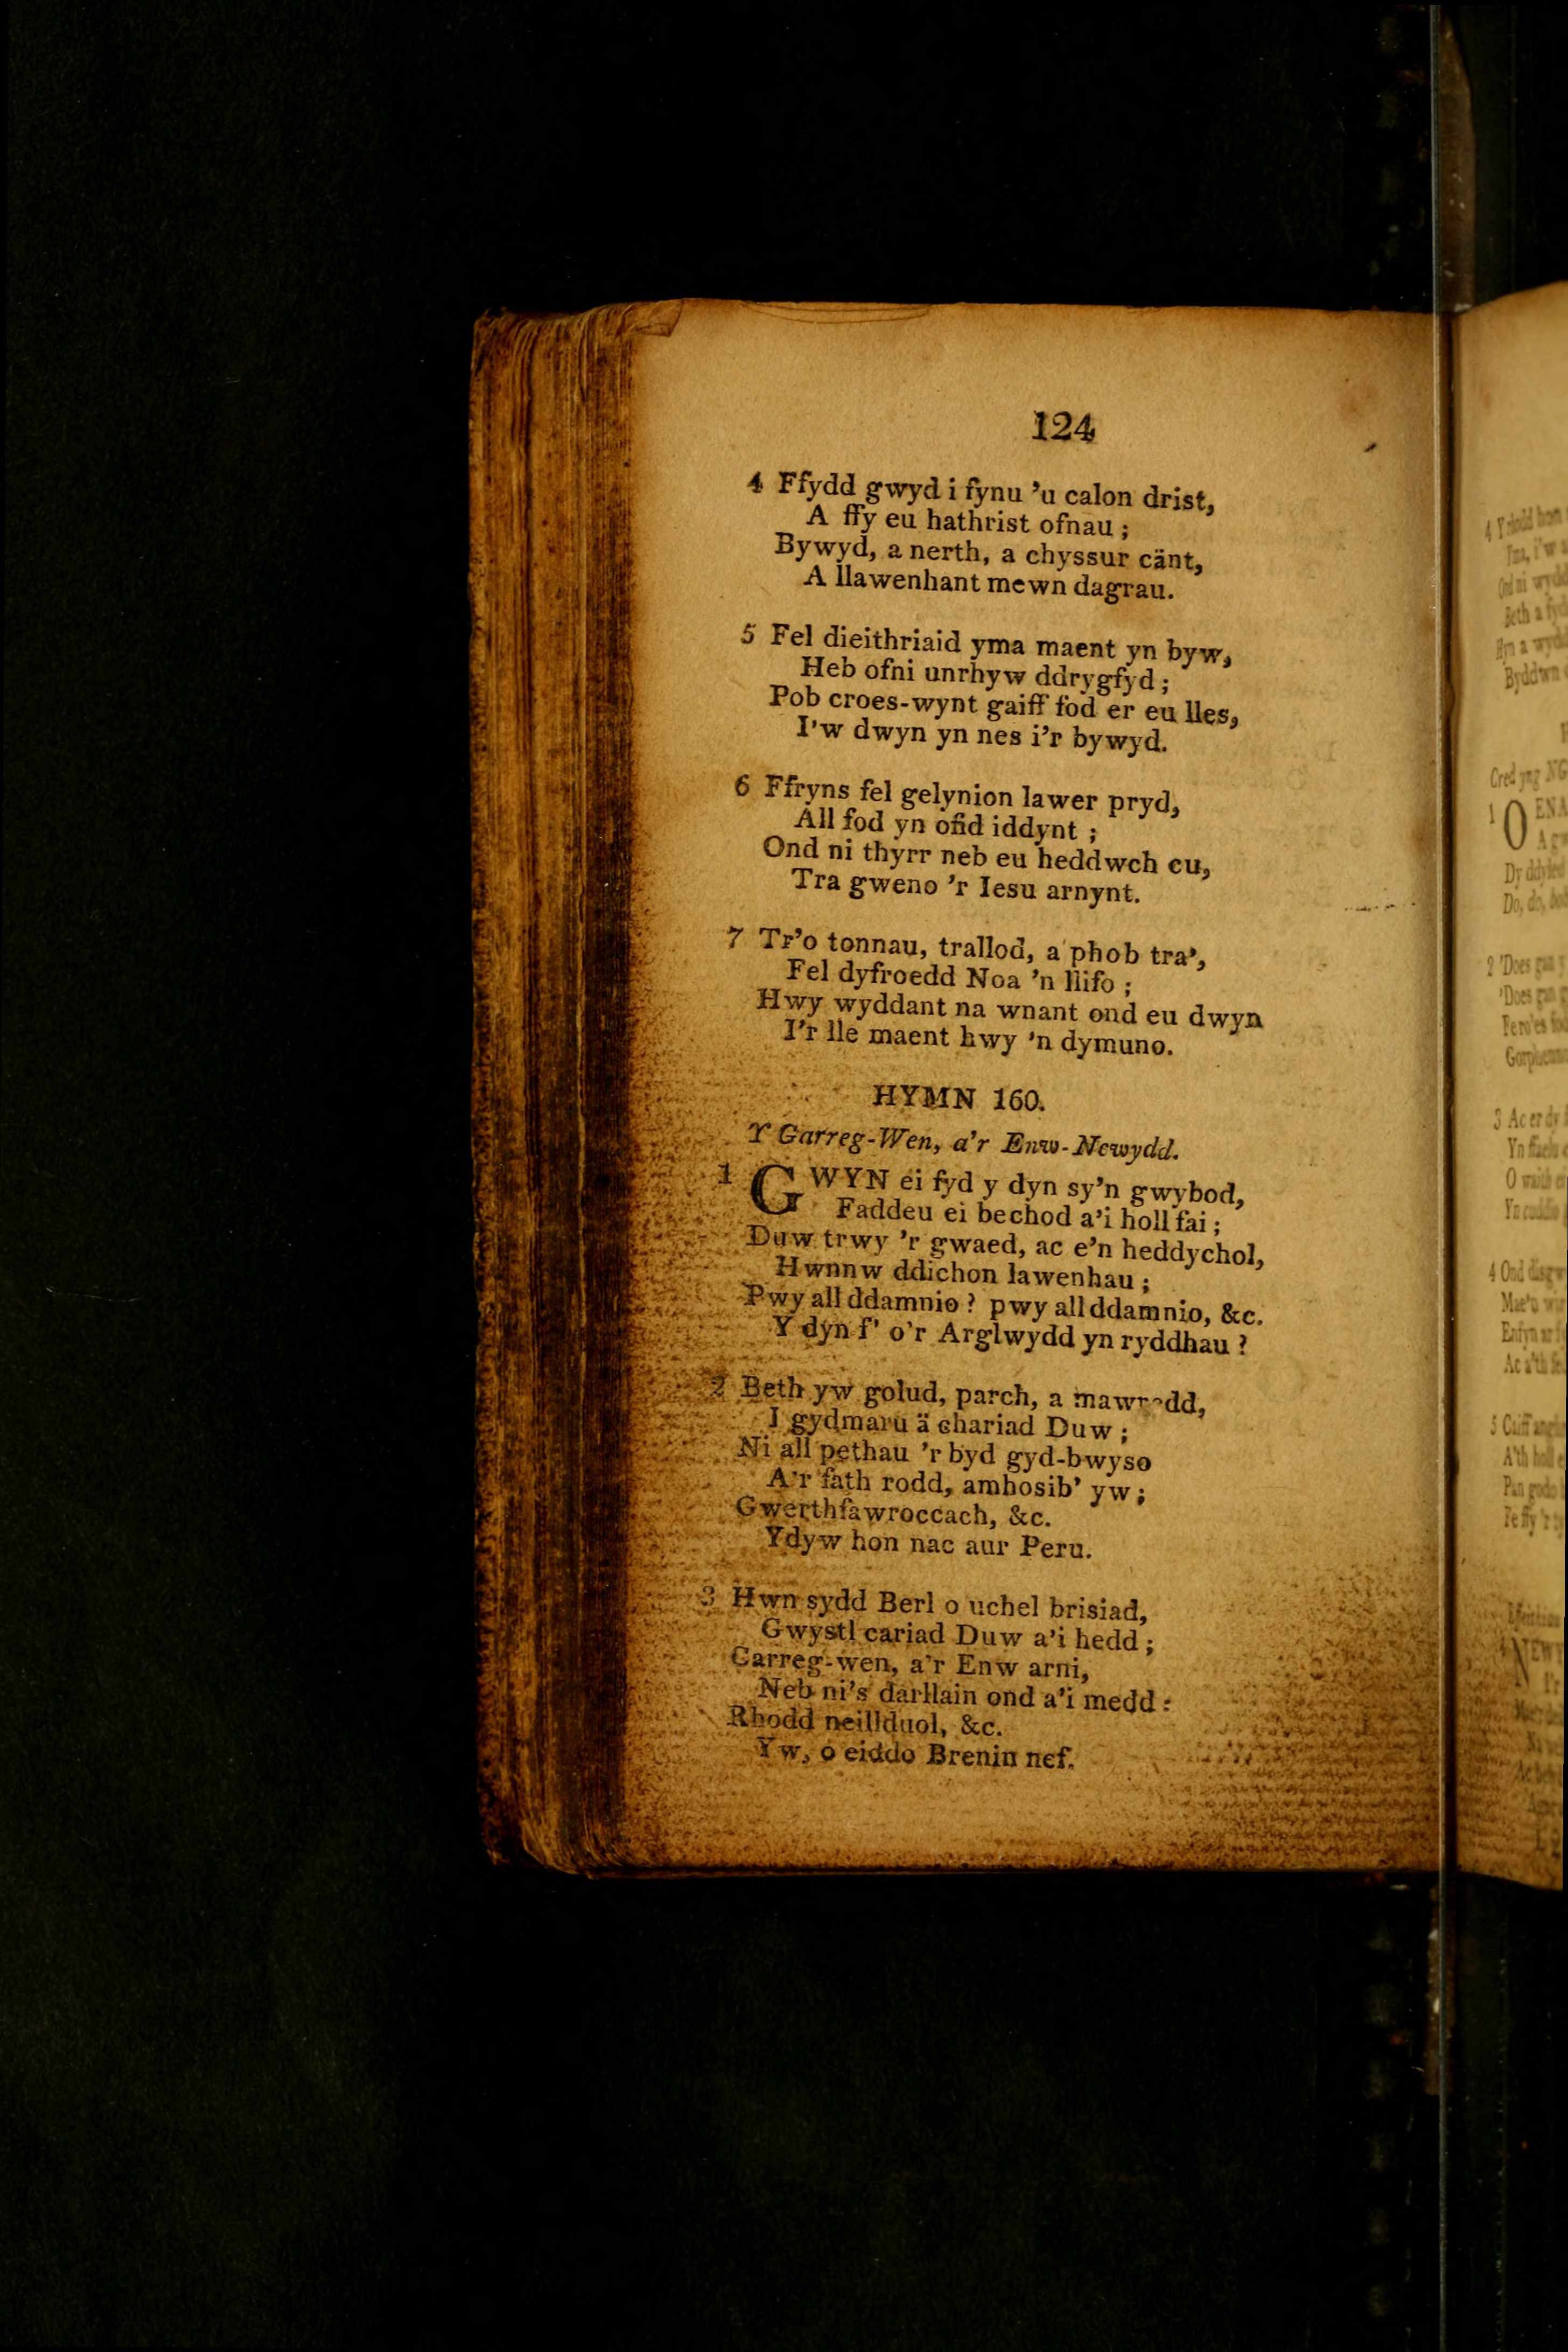 124
4 Ffydd gwyd i fynu 'u calon drist,
A ffy eu hathrist ofnau ;
Bywyd, a nerth, a chyssur cänt,
A llawenhant mewn dagrau.
5 Fel dieithriaid yma maent yn byw,
Heb ofni unrhyw ddrygfyd ;
Pob croes-wynt gaiff fod er eu lles,
I'w dwyn yn nes i'r bywyd.
6 Ffryns fel gelynion lawer pryd,
All fod yn ofid iddynt ;
Ond ni thyrr neb eu heddwch cu,
Tra gweno 'r Iesu arnynt.
7 Tr'o tonnau, trallod, a phob tra',
Fel dyfroedd Noa 'n llifo ;
Hwy wyddant na wnant ond eu dwyn
I'r lle maent hwy 'n dymuno.
HYMN 160.
Y Garreg-Wen, a'r Enw-Newydd.
1 GWYN ei fyd y dyn sy'n gwybod,
Faddeu ei bechod a'i holl fai ;
Duw trwy 'r gwaed, ac e'n heddychol,
Hwnnw ddichon lawenhau ;
Pwy all ddamnio ? pwy all ddamnio, &c.
Y dyn f' o'r Arglwydd yn ryddhau ?
2 Beth yw golud, parch, a mawredd,
I gydmaru ä chariad Duw ;
Ni all pethau 'r byd gyd-bwyso
A'r fath rodd, amhosib' yw ;
Gwerthfawroccach, &c.
Ydyw hon nac aur Peru.
3 Hwn sydd Berl o uchel brisiad,
Gwystl cariad Duw a'i hedd ;
Garreg-wen, a'r Enw arni,
Neb ni's darllain ond a'i medd :
Rhodd neillduol, &c.
Yw, o eiddo Brenin nef.